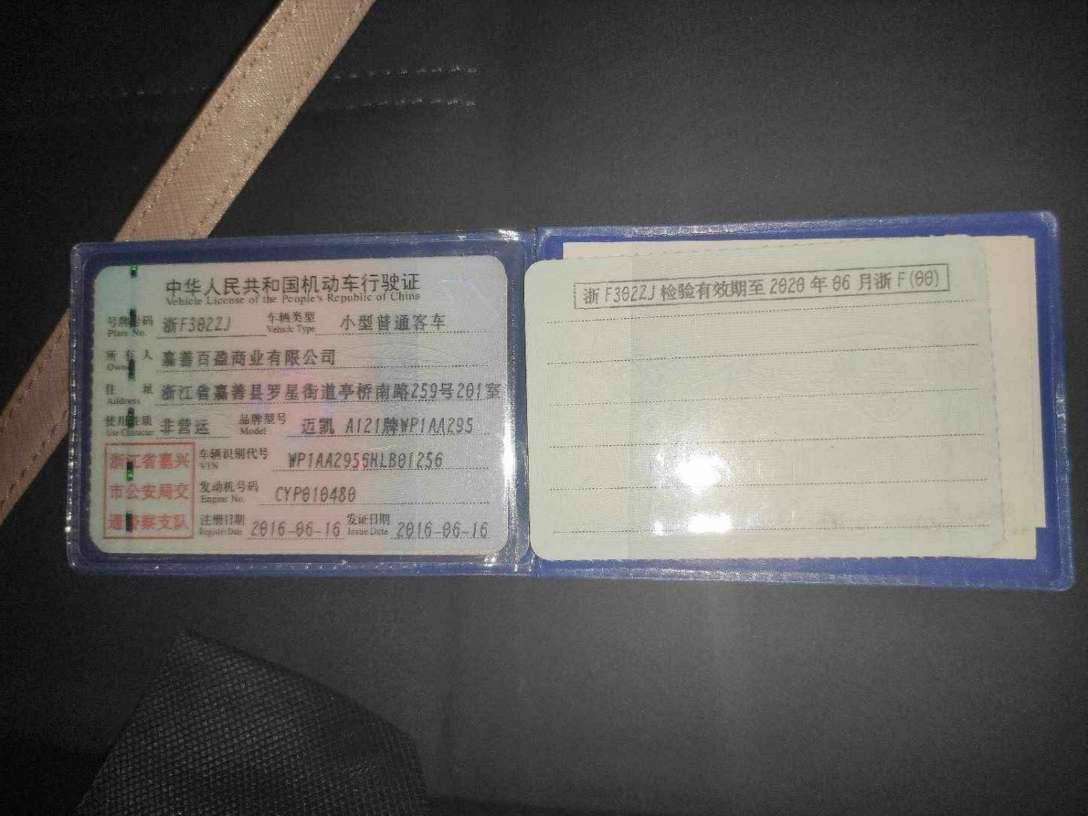 中华人民共和国机动车行驶证
Vehicle License of the People's Republic of China
号牌号码 Plate No. 浙F302ZJ 车辆类型 Vehicle Type 小型普通客车
所有人 Owner 嘉善百盈商业有限公司
住址 Address 浙江省嘉善县罗星街道亭桥南路259号201室
使用性质 Use Character 非营运 品牌型号 Model 迈凯 A121牌WP1AA295
浙江省嘉兴
市公安局交
通警察支队
车辆识别代号 VIN WP1AA2955HLB01256
发动机号码 Engine No. CYP010480
注册日期 Register Date 2016-06-16 发证日期 Issue Date 2016-06-16
浙F302ZJ 检验有效期至 2020 年 06 月浙 F(00)